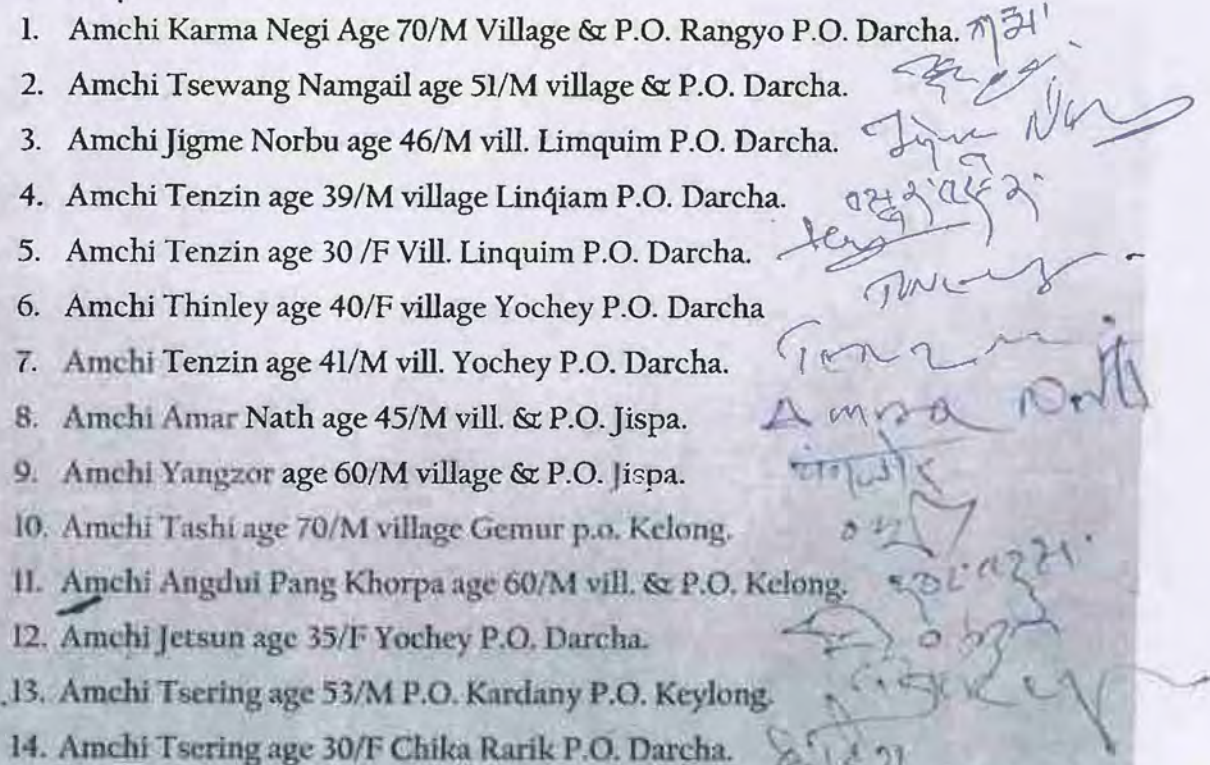 1. Amchi Karma Negi Age 70/M Village & P.O. Rangyo P.O. Darcha.
2. Amchi Tsewang Namgail age 51/M village & P.O. Darcha.
3. Amchi Jigme Norbu age 46/M vill. Limquim P.O. Darcha.
4. Amchi Tenzin age 39/M village Linqiam P.O. Darcha.
5. Amchi Tenzin age 30 /F Vill. Linquim P.O. Darcha.
6. Amchi Thinley age 40/F village Yochey P.O. Darcha
7. Amchi Tenzin age 41/M vill. Yochey P.O. Darcha. Tenzin
8. Amchi Amar Nath age 45/M vill. & P.O. Jispa.
9. Amchi Yangzor age 60/M village & P.O. Jispa.
10. Amchi Tashi age 70/M village Gemur p.o. Kelong.
11. Amchi Angdui Pang Khorpa age 60/M vill. & P.O. Kelong.
12. Amchi Jetsun age 35/F Yochey P.O. Darcha.
13. Amchi Tsering age 53/M P.O. Kardany P.O. Keylong.
14. Amchi Tsering age 30/F Chika Rarik P.O. Darcha.